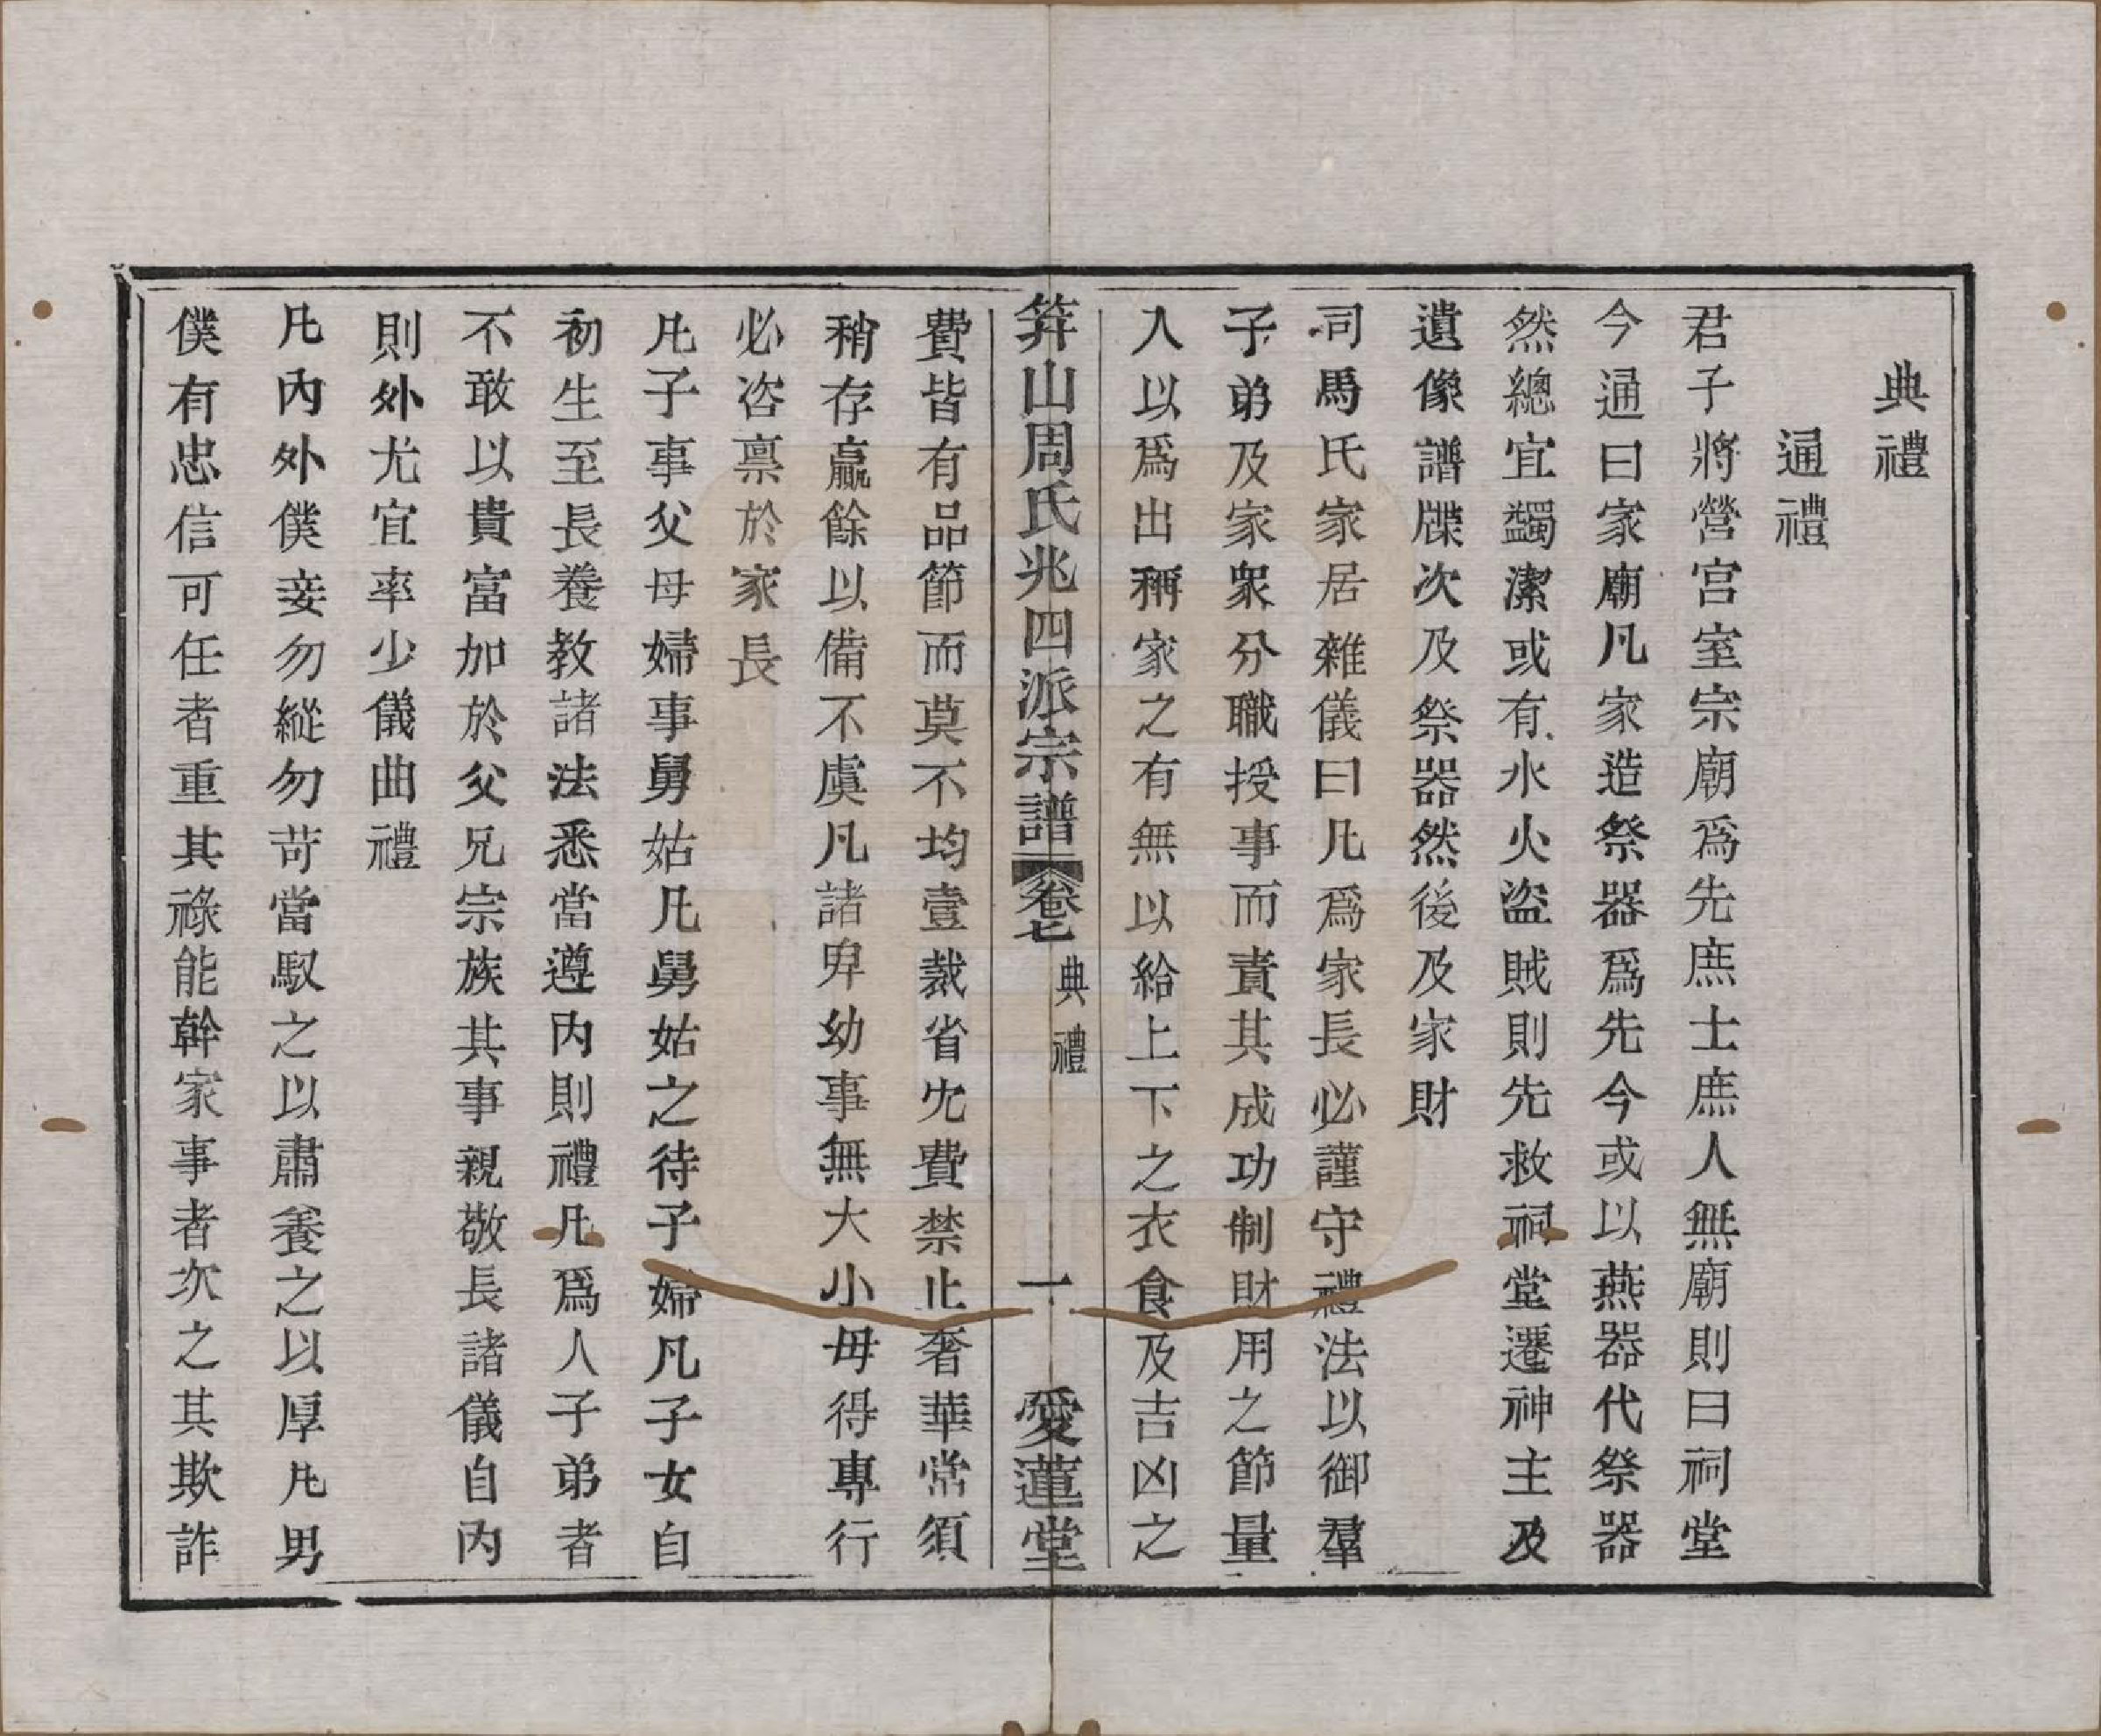 典禮
通禮
君子將營宮室宗廟爲先庶士庶人無廟則曰祠堂
今通曰家廟凡家造祭器爲先今或以燕器代祭器
然總宜蠲潔或有水火盜賊則先救祠堂遷神主及
遺像譜牒次及祭器然後及家財
司馬氏家居雜儀曰凡爲家長必謹守禮法以御羣
子弟及家衆分職授事而責其成功制財用之節量
入以爲出稱家之有無以給上下之衣食及吉凶之
筭山周氏兆四派宗譜 卷七 典禮 一 愛蓮堂
費皆有品節而莫不均壹裁省宂費禁止奢華常須
稍存贏餘以備不虞凡諸卑幼事無大小毋得專行
必咨禀於家長
凡子事父母婦事舅姑凡舅姑之待子婦凡子女自
初生至長養教諸法悉當遵內則禮凡爲人子弟者
不敢以貴富加於父兄宗族其事親敬長諸儀自內
則外尤宜率少儀曲禮
凡內外僕妾勿縱勿苛當馭之以肅養之以厚凡男
僕有忠信可任者重其祿能幹家事者次之其欺詐